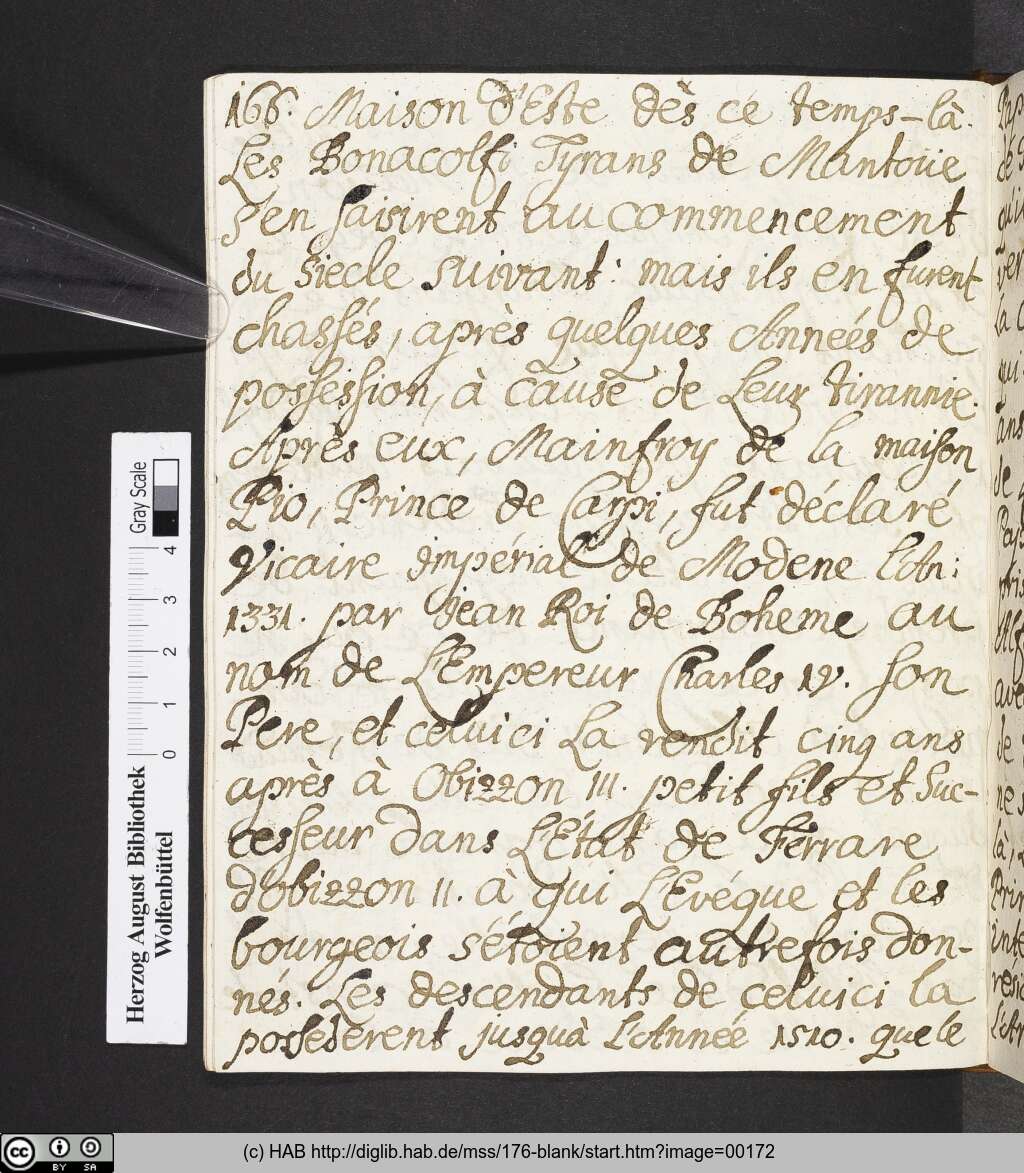 166. Maison d'Este dès ce temps-là.
Les Bonacolfi Tyrans de Mantoüe
s'en saisirent au commencement
du siecle suivant: mais ils en furent
chassés, après quelques Années de
possession, à cause de Leur tirannie.
Après eux, Mainfroy de la maison
Pio, Prince de Carpi, fut déclaré
Vicaire impérial de Modene l'An:
1331. par Jean Roi de Boheme au
nom de L'Empereur Charles IV. son
Pere, et celuici La rendit cinq ans
après à Obizzon III. petit fils et Suc-
cesseur dans L'Etat de Ferrare
d'obizzon II. à qui L'Evéque et les
bourgeois s'étoient autrefois don-
nés. Les descendants de celuici la
possederent jusquà L'Année 1510. que le
Herzog August Bibliothek
Wolfenbüttel
Gray Scale
0 1 2 3 4
cc BY SA
(c) HAB http://diglib.hab.de/mss/176-blank/start.htm?image=00172